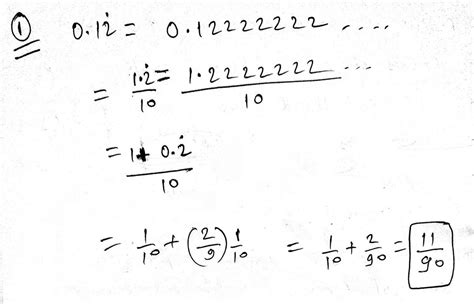 ① 0.12̇ = 0.12222222 ....
= 1.2̇/10 = 1.2222222.../10
= 1+ 0.2̇/10
= 1/10 + (2/9) 1/10 = 1/10 + 2/90 = 11/90